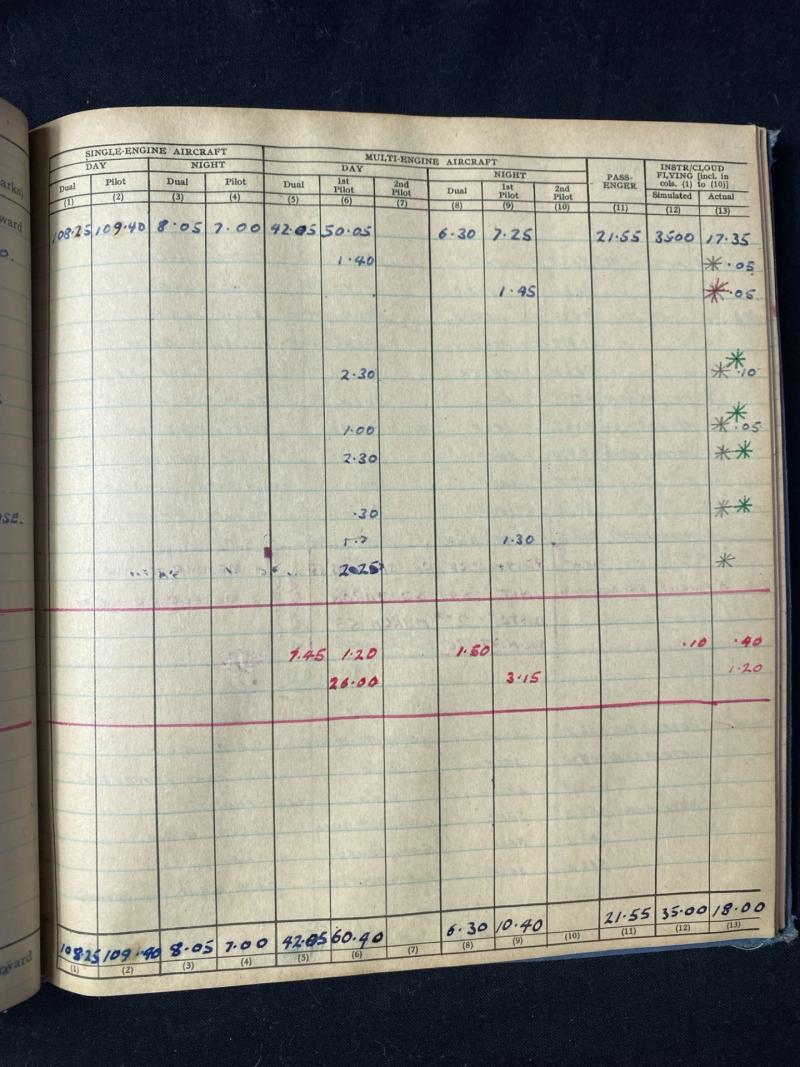 arks)
ward
SE.
ward
SINGLE-ENGINE AIRCRAFT MULTI-ENGINE AIRCRAFT
DAY NIGHT DAY NIGHT PASS-ENGER INSTR/CLOUD FLYING [incl. in cols. (1) to (10)]
Dual Pilot Dual Pilot Dual 1st Pilot 2nd Pilot Dual 1st Pilot 2nd Pilot Simulated Actual
(1) (2) (3) (4) (5) (6) (7) (8) (9) (10) (11) (12) (13)
108.25 109.40 8.05 7.00 42.05 50.05 6.30 7.25 21.55 3500 17.35
1.40 .05
1.45 .05
2.30 .10
1.00 .05
2.30
.30
1.30
2.25
7.45 1.20 1.50 .10 .40
26.00 3.15 1.20
108.25 109.40 8.05 7.00 42.05 60.40 6.30 10.40 21.55 35.00 18.00
(1) (2) (3) (4) (5) (6) (7) (8) (9) (10) (11) (12) (13)